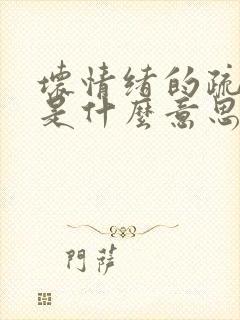 壞情緒的疏
是什麼意思
門薩